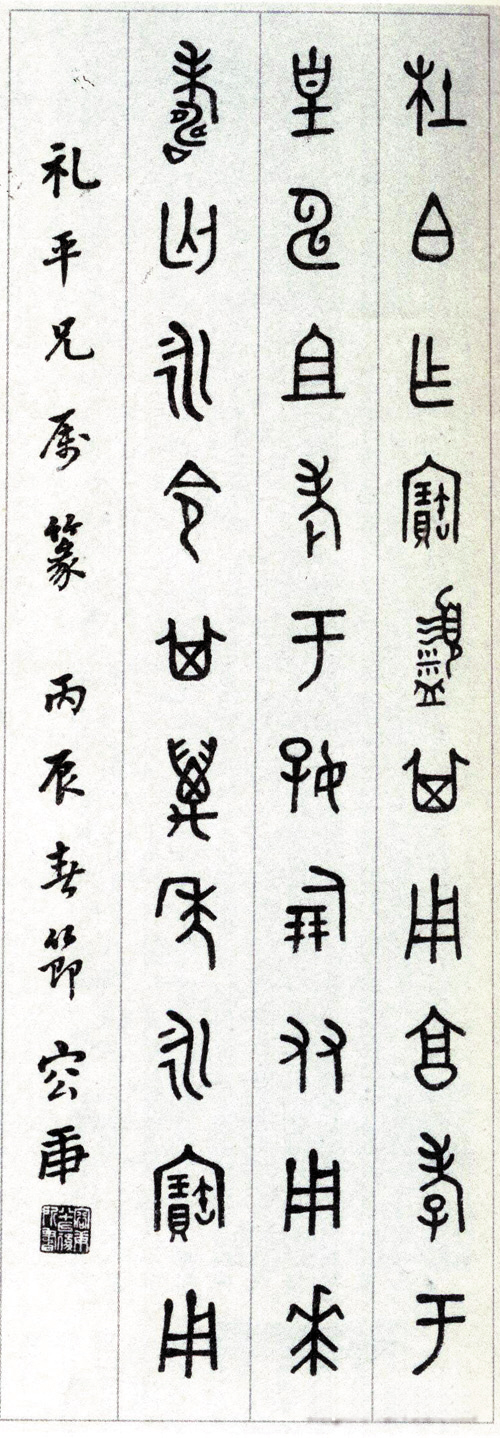 杜白乍寶盨其用亯孝于
皇申且考于好倗友用𠦪
壽匄永令其萬年永寶用
礼平兄属篆 丙辰春節 容庚